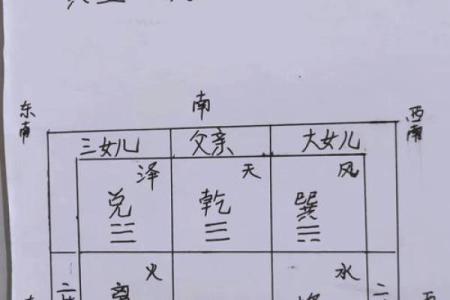 南
东南 西南
三女儿 父亲 大女儿
泽 天 风
兑 乾 巽
火 水
离